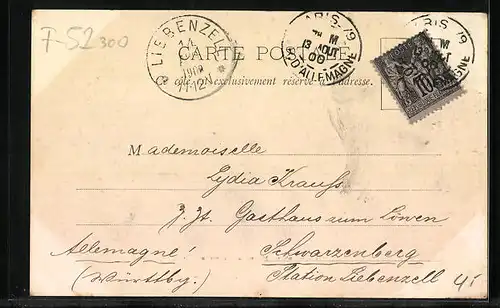 F-52 300
LIEBENZELL
14
1900
11-12N
PARIS. 79
M
13 AOUT
00
R. D'ALLEMAGNE
CARTE POSTALE
ce côté est exclusivement réservé à l'adresse.
10
Mademoiselle
Lydia Krauss
z. Zt. Gasthaus zum Löwen
Allemagne! Schwarzenberg
(Württbg.) Station Liebenzell